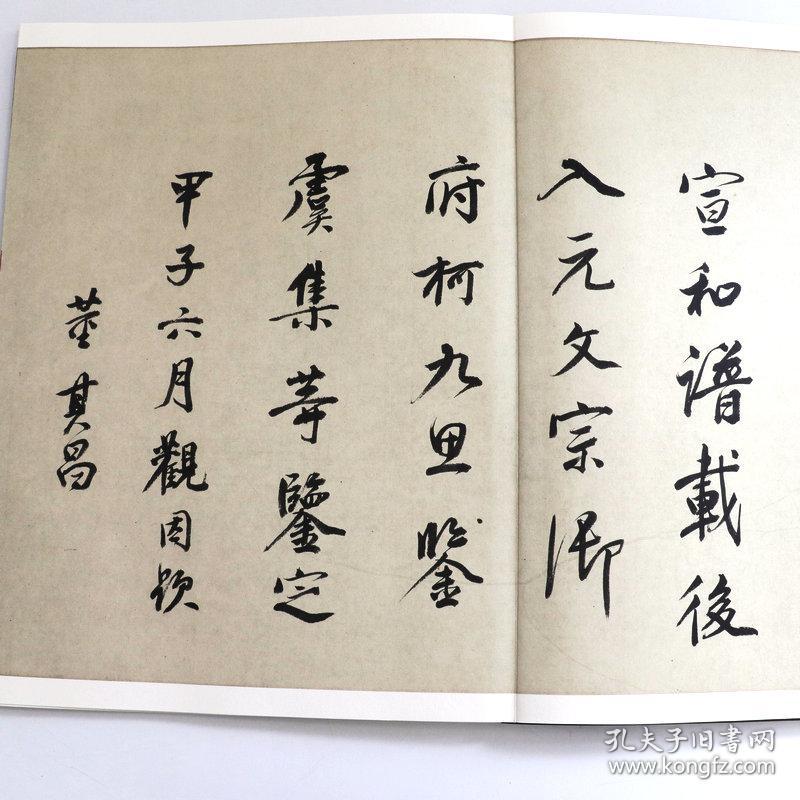 宣和譜載後
入元文宗御
府柯九思鑒
虞集等鑒定
甲子六月觀因題
董其昌
孔夫子旧书网
www.kongfz.com